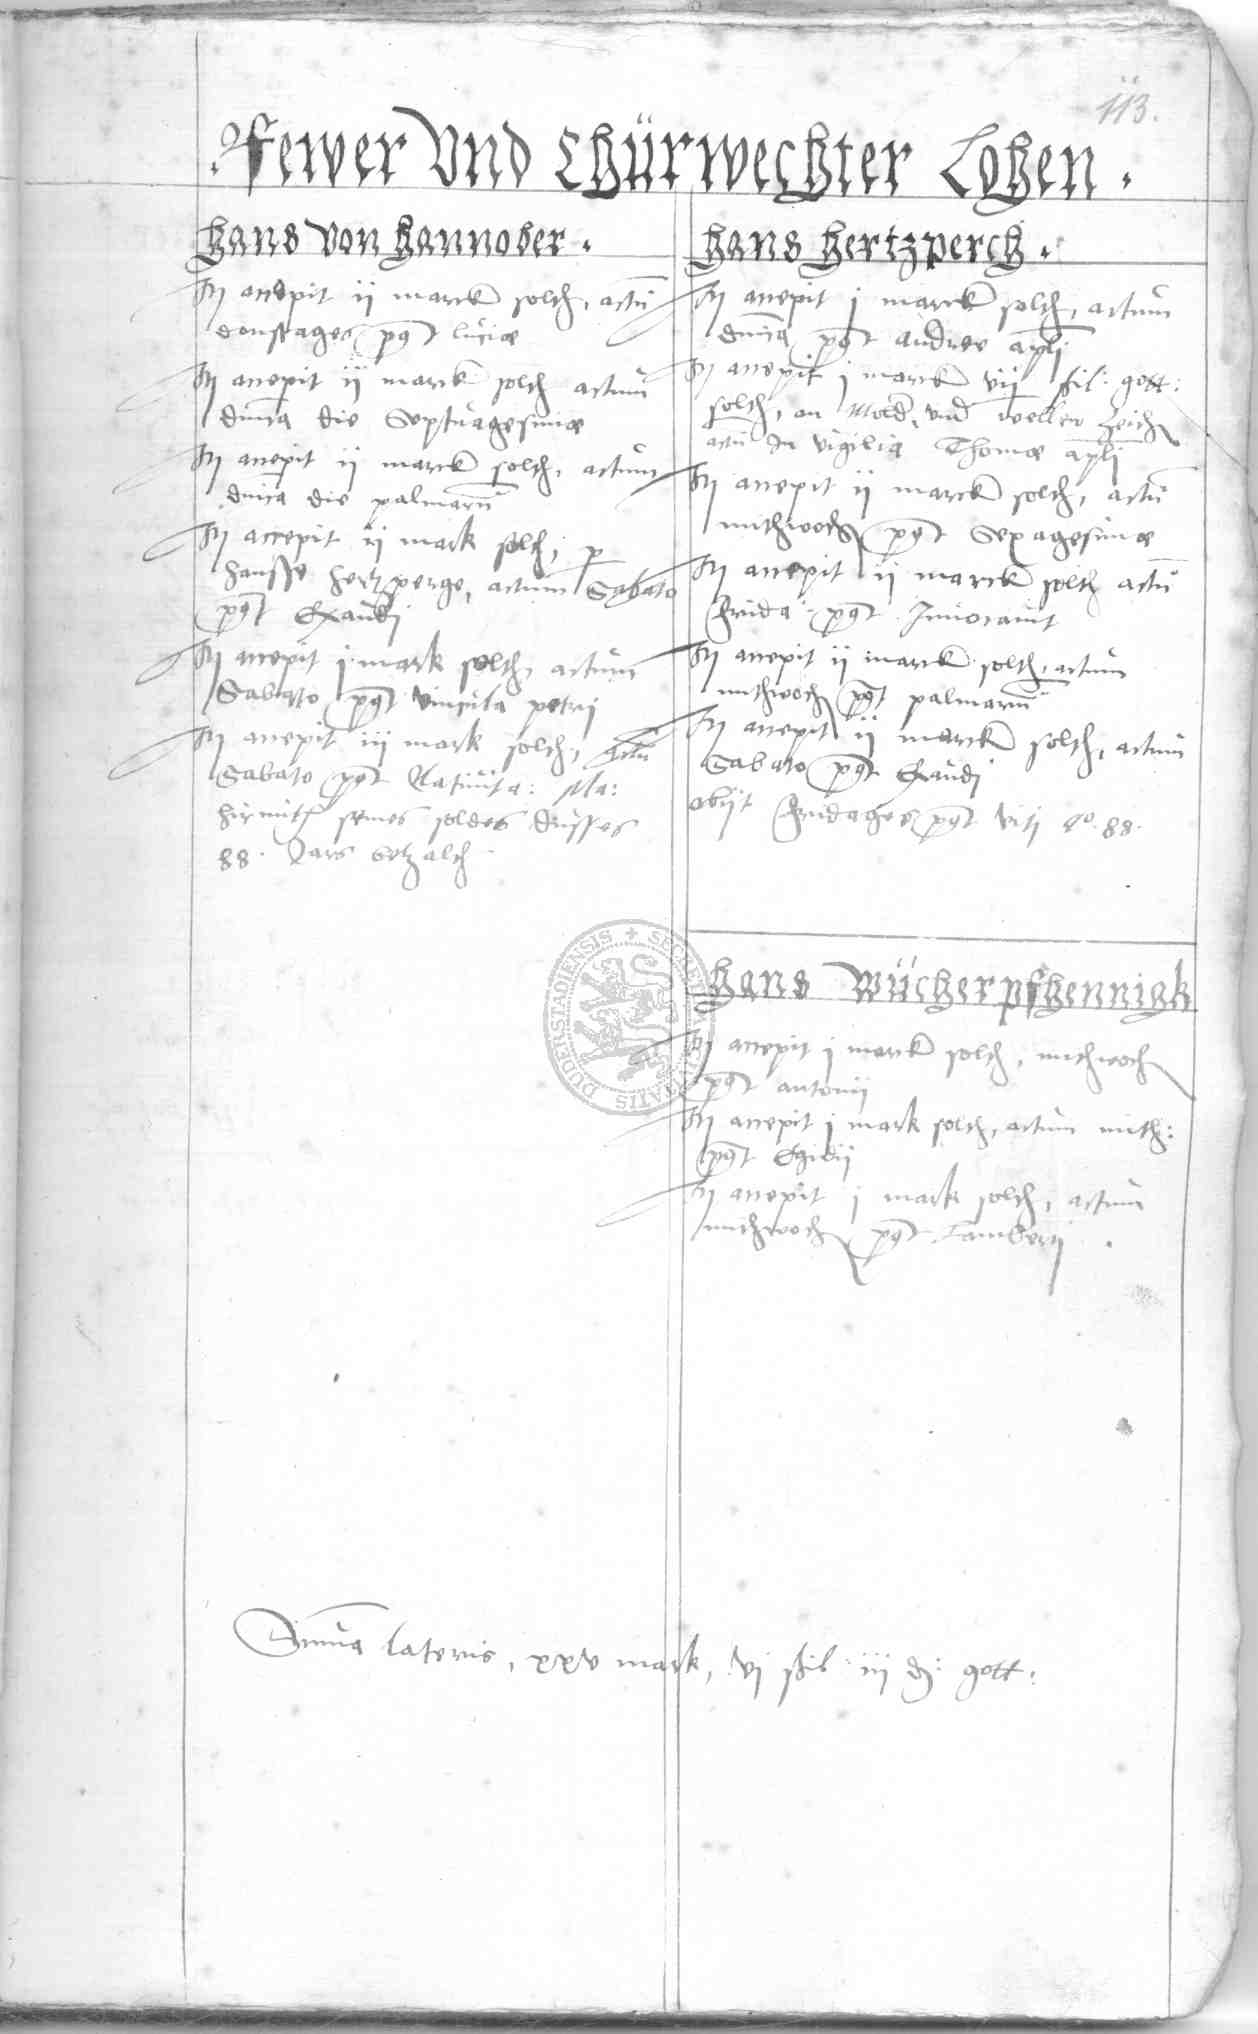 113.
. Fewer Vnd Thürwechter Lohen .
Hans Von Hannober .
It accepit ij marck solth, actu
donstages post lucie
It accepit ij marck solth actum
dnica die Septuagesime
It accepit ij marck solth, actum
dnica die palmaru
It accepit ij mark solth, p
Hansse Hertzperge, actum Sabato
post Exaudi
It accepit j mark solth, actum
Sabato post Vincula petri
It accepit iij mark solth, actu
Sabato post Natiuita: Ma:
hirmith seines soldes dusses
88.
Hans Hertzperch .
It accepit j marck solth, actum
dnica post Andree apli
It accepit j marck vij sil: gott:
solth, an vnd
actu In vigilia Thome apli
It accepit ij marck solth, actu
mithwoch post Sexagesime
It accepit ij marck solth actu
Frida: post Inuocauit
It accepit ij marck solth, actum
mithwoch post palmaru
It accepit ij marck solth, actum
Sabato post Exaudi
obijt Fridages post Viti Ao. 88.
Hans Wücherpfhennigk
It accepit j marck solth, mithwoch
post Antonij
It accepit j mark solth, actum mith:
post Egidij
It accepit j mark solth, actum
mithwoch post Lamberti .
Suma lateris, xxv mark, vj sil: iij d: gott:
DUDERSTADIENSIS + SECRETUM CIVITATIS